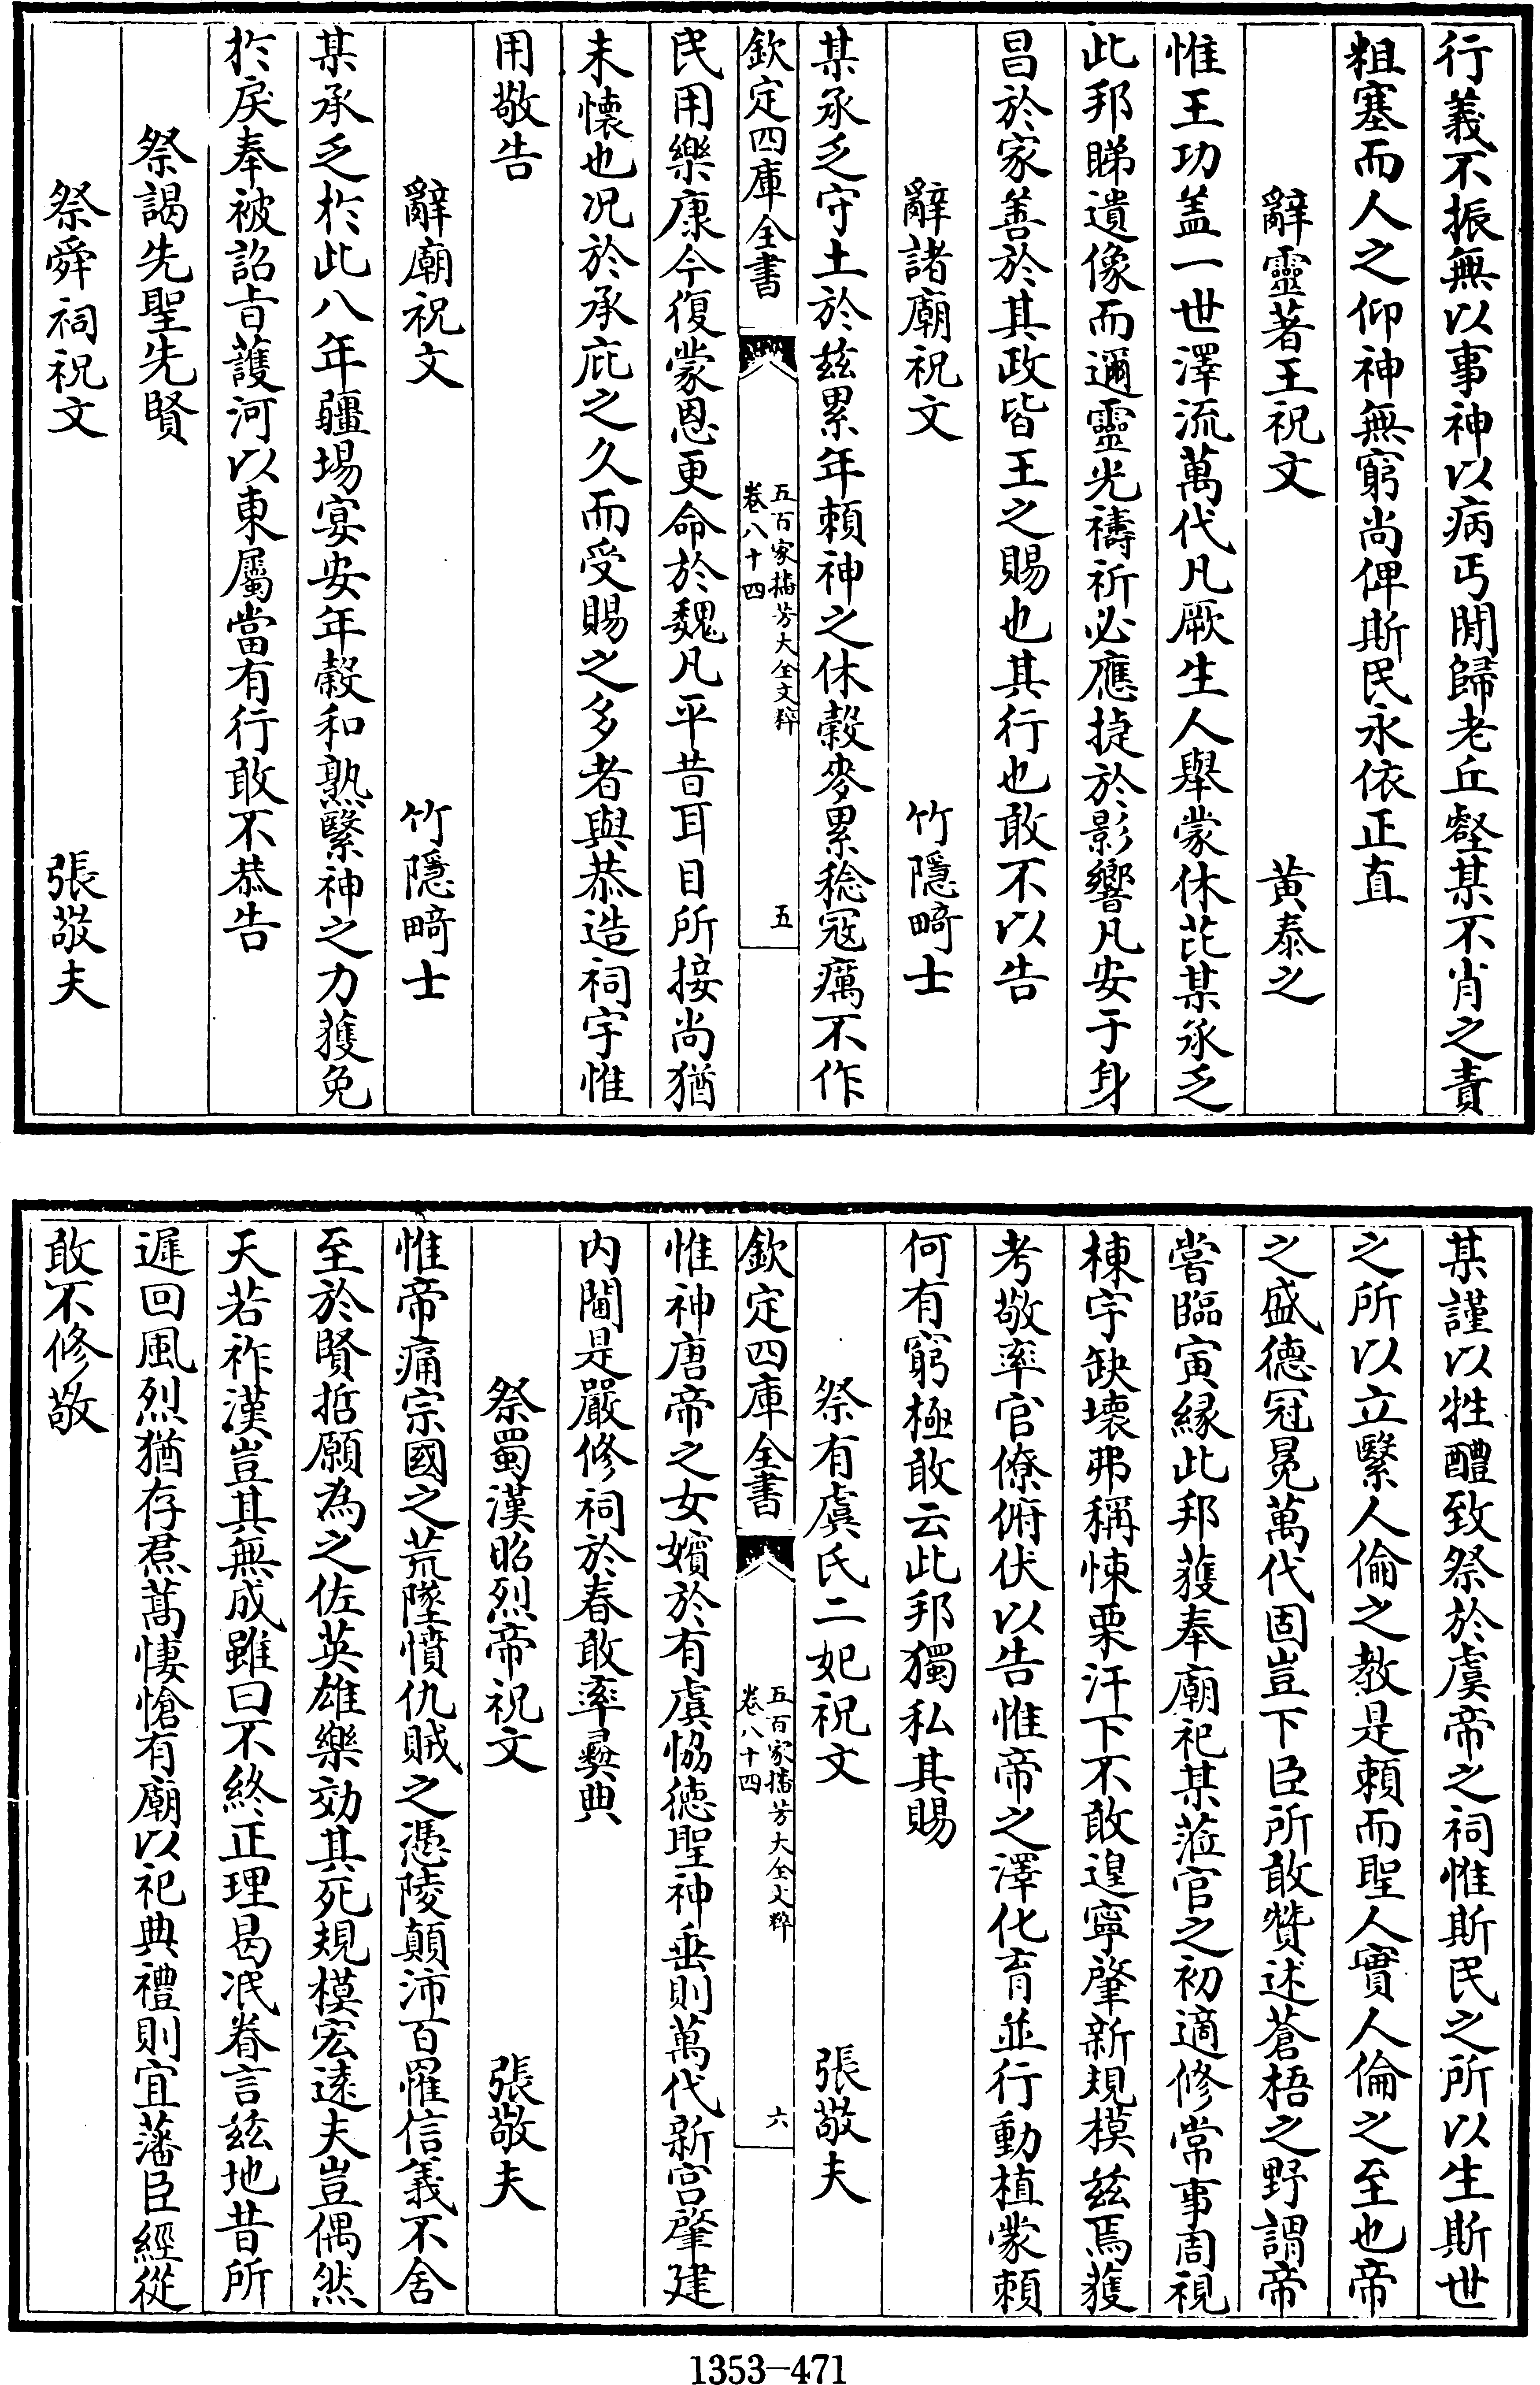 行義不振無以事神以病丐閒歸老丘壑某不肖之責
粗塞而人之仰神無窮尚俾斯民永依正直
辭靈著王祝文 黃泰之
惟王功盖一世澤流萬代凡厥生人舉蒙休芘某承乏
此邦睇遺像而邇靈光禱祈必應捷於影響凡安于身
昌於家善於其政皆王之賜也其行也敢不以告
辭諸廟祝文 竹隱畸士
某承乏守土於兹累年頼神之休穀麥累稔冦癘不作
欽定四庫全書 五百家播芳大全文粹 卷八十四 五
民用樂康今復蒙恩更命於魏凡平昔耳目所接尚猶
未懷也况於承庇之久而受賜之多者與恭造祠宇惟
用敬告
辭廟祝文 竹隱畸士
某承乏於此八年疆場宴安年穀和熟繄神之力獲免
於戾奉被詔㫖護河以東屬當有行敢不恭告
祭謁先聖先賢
祭舜祠祝文 張敬夫
某謹以牲醴致祭於虞帝之祠惟斯民之所以生斯世
之所以立繄人倫之教是頼而聖人實人倫之至也帝
之盛德冠冕萬代固豈下臣所敢贊述蒼梧之野謂帝
嘗臨寅縁此邦獲奉廟祀某涖官之初適修常事周視
棟宇缺壞弗稱悚栗汗下不敢遑寧肇新規模兹焉獲
考敬率官僚俯伏以告惟帝之澤化育並行動植蒙頼
何有窮極敢云此邦獨私其賜
祭有虞氏二妃祝文 張敬夫
欽定四庫全書 五百家播芳大全文粹 卷八十四 六
惟神唐帝之女嬪於有虞恊徳聖神垂則萬代新宫肇建
内閫是嚴修祠於春敢率彛典
祭蜀漢昭烈帝祝文 張敬夫
惟帝痛宗國之荒墜憤仇賊之憑陵顛沛百罹信義不舍
至於賢哲願為之佐英雄樂効其死規模宏逺夫豈偶然
天若祚漢豈其無成雖曰不終正理曷泯眷言兹地昔所
遲回風烈猶存焄蒿悽愴有廟以祀典禮則宜藩臣經從
敢不修敬
1353-471